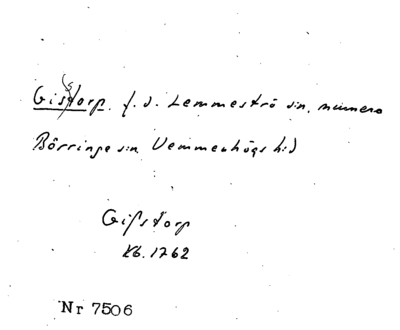 Gisstorp. f.d. Lemmeströ sn, numera
Börringe sn Vemmenhögs hd
Gisstorp
Kb. 1762
Nr 7506